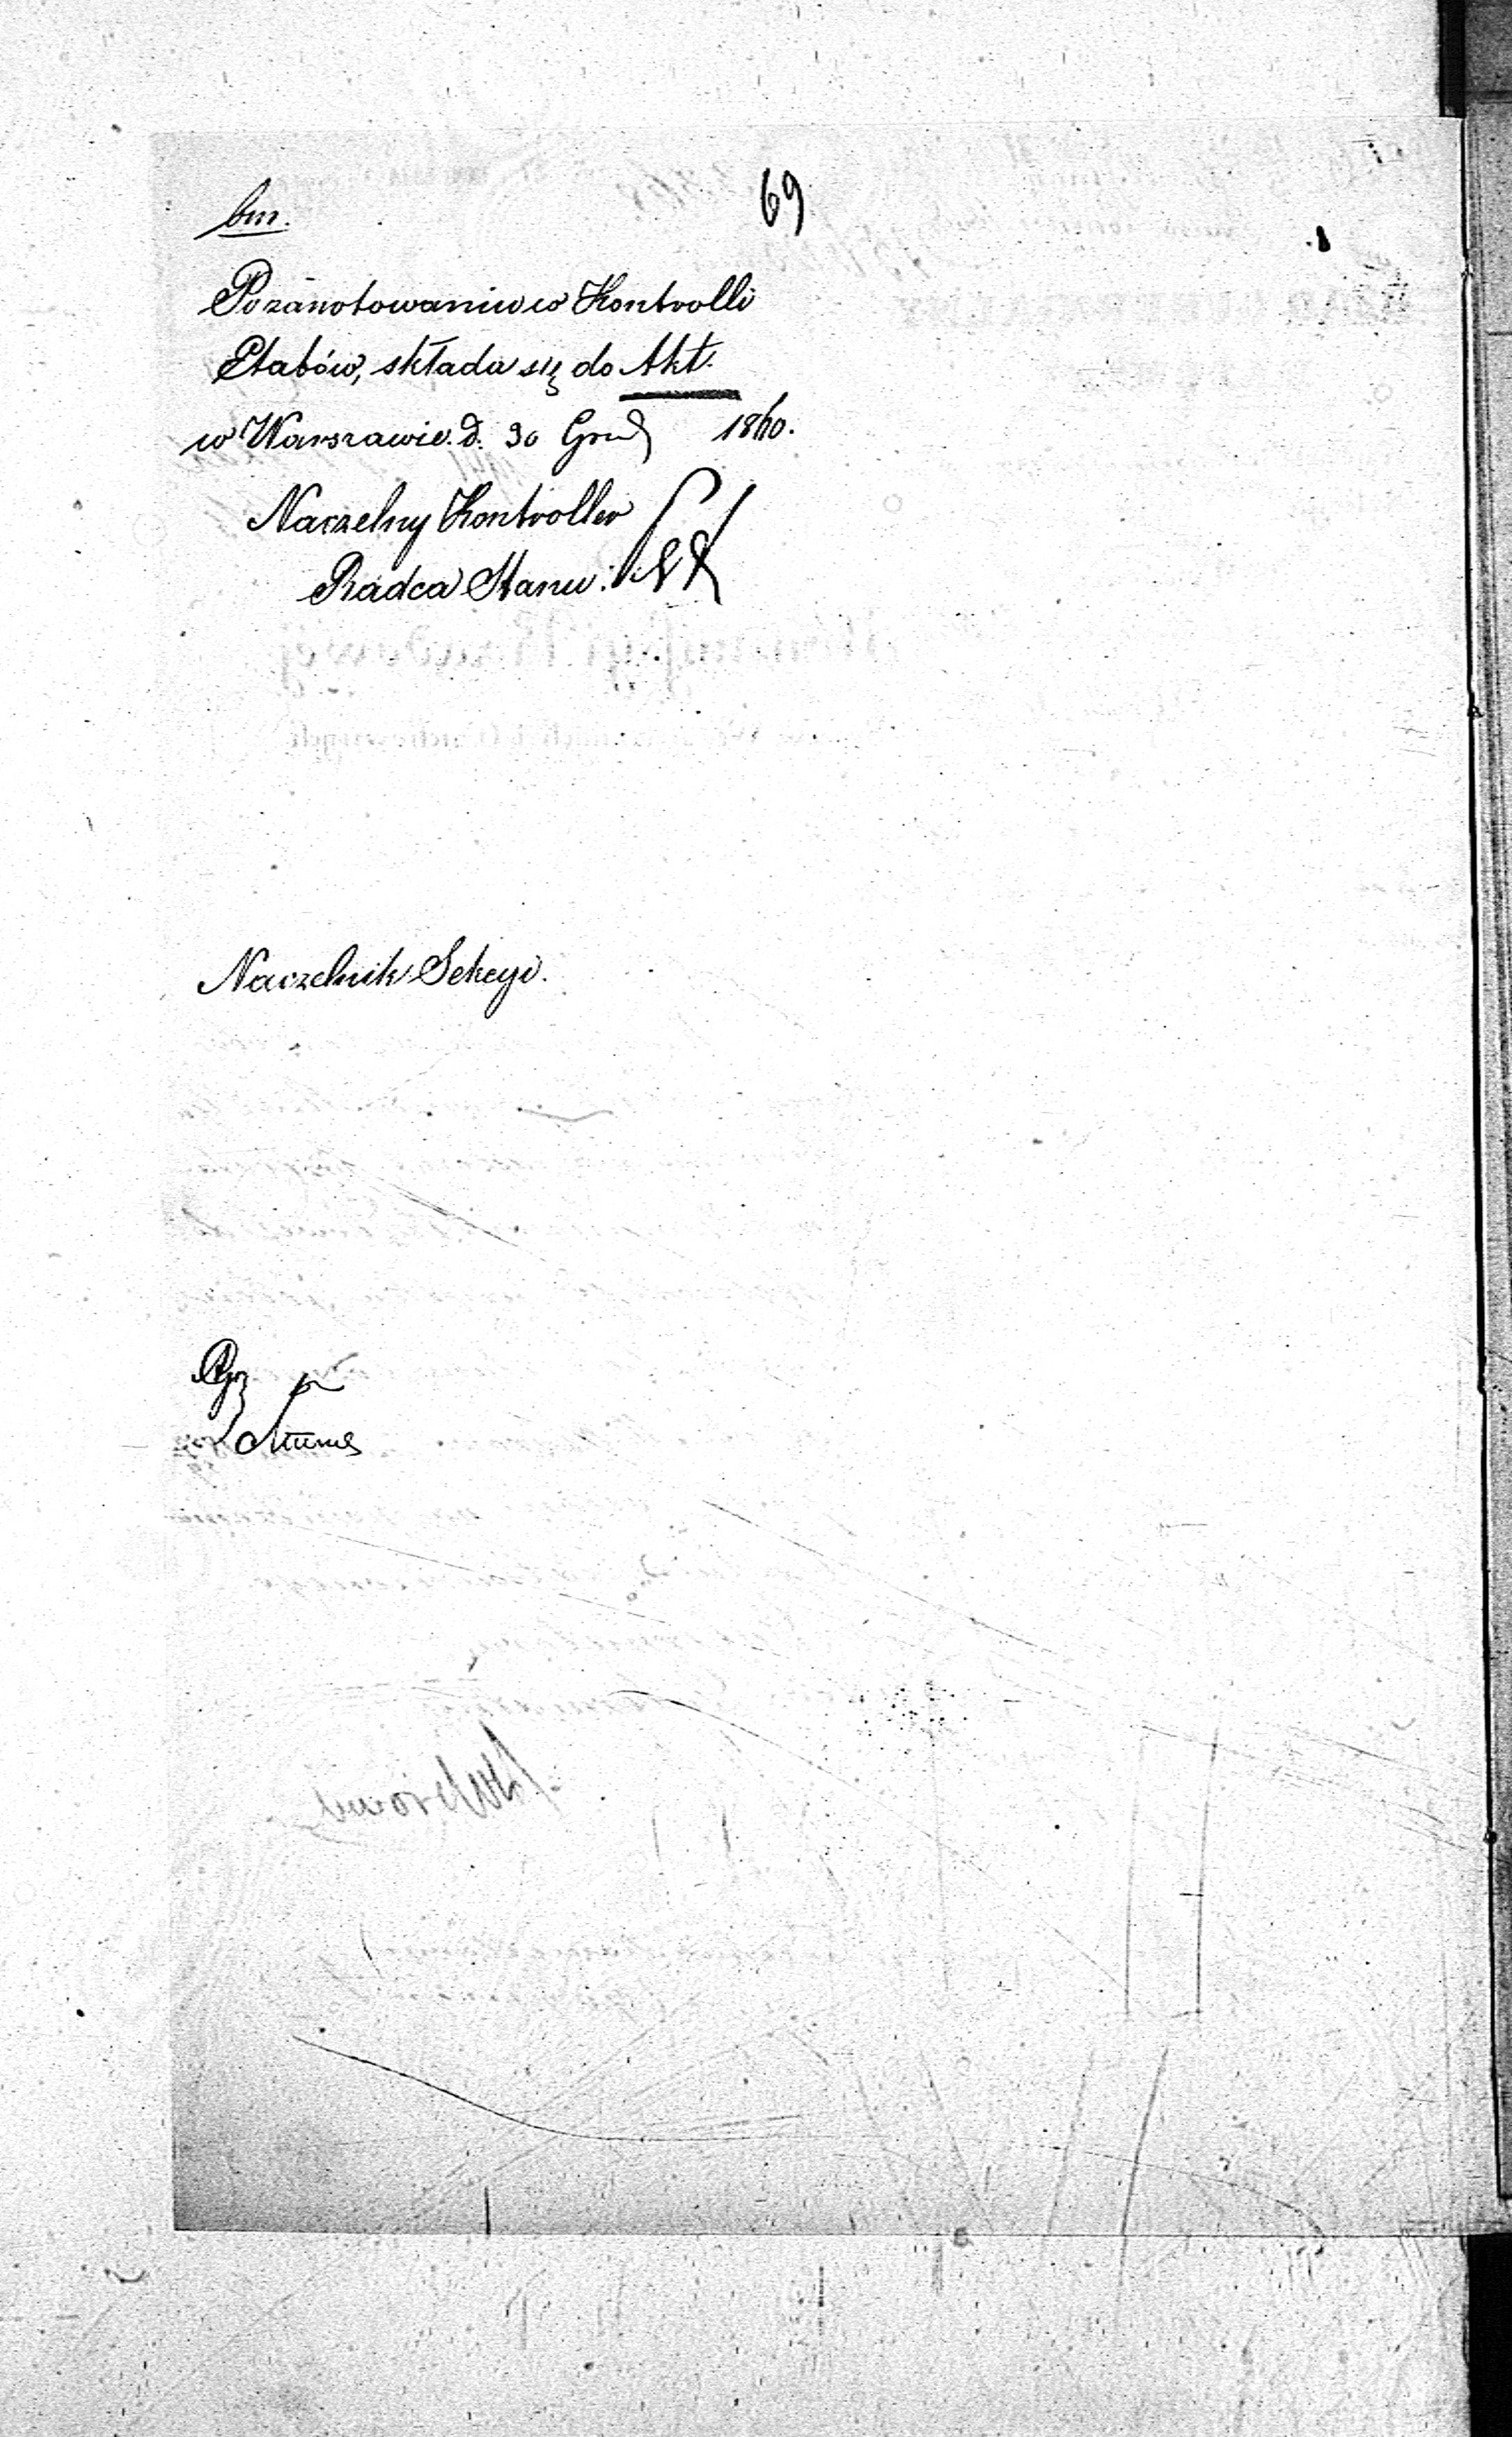 bm.
69
Po zanotowaniu w Kontrolli
Etatów, składa się do Akt.
w Warszawie d. 30 Grud 1860.
Naczelny Kontroller
Radca Stanu:
Naczelnik Sekcyi.